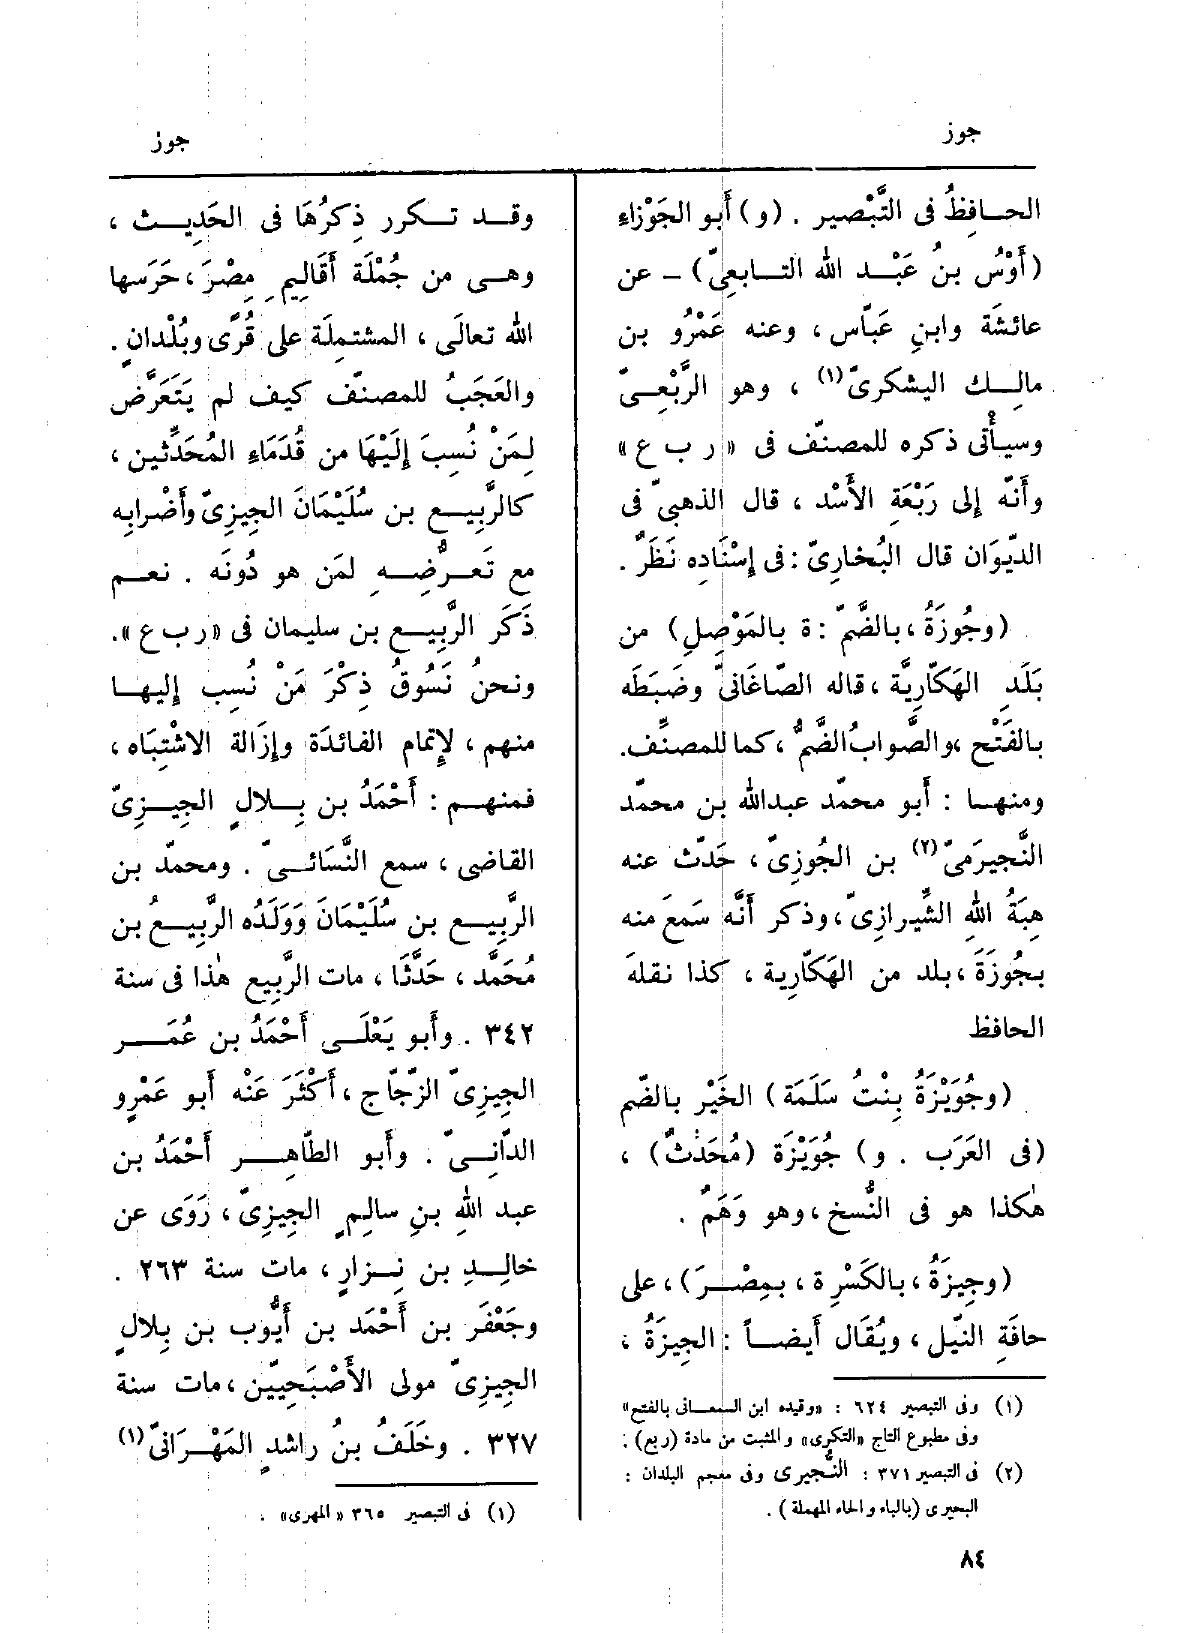 جوز
جوز
الحافظُ فى التَّبْصير . (و) أَبو الجَوْزاءِ
(أَوْسُ بنُ عَبْد الله التابعىّ) – عن
عائشة وابنِ عَبّاس ، وعنه عَمْرُو بن
مالِك اليشكرىّ(١) ، وهو الرَّبْعىّ
وسيأْتى ذكره للمصنّف فى «ر ب ع»
وأَنّه إِلى رَبْعَةِ الأَسْد ، قال الذهبىّ فى
الدّيوَان قال البُخارىّ : فى إِسْنَادِه نَظَرٌ .
(وجُوزَةُ ، بالضَّمّ : ة بالمَوْصِلِ) من
بَلَدِ الهَكّارِيَّة ، قاله الصّاغَانىّ وضَبَطَه
بالفَتْح ، والصَّوابُ الضَّمُّ ، كما للمصنِّف.
ومنها : أَبو محمّد عبدالله بن محمّد
النَّجيرَمىّ(٢) بن الجُوزِىّ ، حَدّث عنه
هِبَةُ اللهِ الشِّيرازِىّ ، وذكر أَنَّه سَمعَ منه
بجُوزَةَ ، بلد من الهَكّارِية ، كذا نقلهَ
الحافظ
(وجُوَيْزَةُ بِنْتُ سَلَمَة) الخَيْر بالضّم
(فى العَرَب . و) جُوَيْزَة (مُحَدّثٌ) ،
هٰكذا هو فى النُّسخ ، وهو وَهَمٌ .
(وجِيزَةُ ، بالكَسْرِ ة ، بمِصْرَ) ، على
حافَةِ النّيل ، ويُقَال أَيضاً : الجِيزَةُ ،
(١) وفى التبصير ٦٢٤ : «وقيده ابن السمعانى بالفتح»
وفى مطبوع التاج «التكرى» والمثبت من مادة (ربع) .
(٢) فى التبصير ٣٧١ : النُّجيرى وفى معجم البلدان :
البحيرى (بالباء والحاء المهملة) .
وقد تكرر ذِكرُهَا فى الحَدِيث ،
وهى من جُمْلَة أَقَالِيمِ مِصْرَ ، حَرَسها
الله تعالَى ، المشتمِلَة على قُرًى وبُلْدانٍ .
والعَجَبُ للمصنّف كيف لم يَتَعَرَّض
لِمَنْ نُسِبَ إِلَيْهَا من قُدَمَاءِ المُحَدِّثين ،
كالرَّبِيع بن سُلَيْمَانَ الجِيزِىّ وأَضْرابِه
مع تَعرُّضِه لمَن هو دُونَه . نعم
ذَكَر الرَّبِيع بن سليمان فى «ر ب ع».
ونحنُ نَسُوقُ ذِكْرَ مَنْ نُسِب إِليها
منهم ، لإِتمام الفائدَة وإِزَالة الاشْتِبَاه ،
فمنهم : أَحْمَدُ بن بِلالٍ الجِيزِىّ
القاضى ، سمع النَّسَائىّ . ومحمّد بن
الرَّبِيع بن سُلَيْمَانَ وَوَلَدُه الرَّبِيعُ بن
مُحَمَّد ، حَدَّثَا ، مات الرَّبِيع هٰذا فى سنة
٣٤٢ . وأَبو يَعْلَى أَحْمَدُ بن عُمَر
الجِيزِىّ الزّجّاج ، أَكْثَرَ عَنْه أَبو عَمْرٍو
الدّانِىّ . وأَبو الطّاهِر أَحْمَدُ بن
عبد اللهِ بنِ سالِمٍ الجِيزِىّ ، رَوَى عن
خالِدِ بن نِزارٍ ، مات سنة ٢٦٣ .
وجَعْفَر بن أَحْمَد بن أَيُّوب بن بِلالٍ
الجِيزِىّ مولى الأَصْبَحِيّين ، مات سنة
٣٢٧ . وخَلَفُ بنُ راشدٍ المَهْرَانىّ(١)
(١) فى التبصير ٣٦٥ «المهرى» .
٨٤